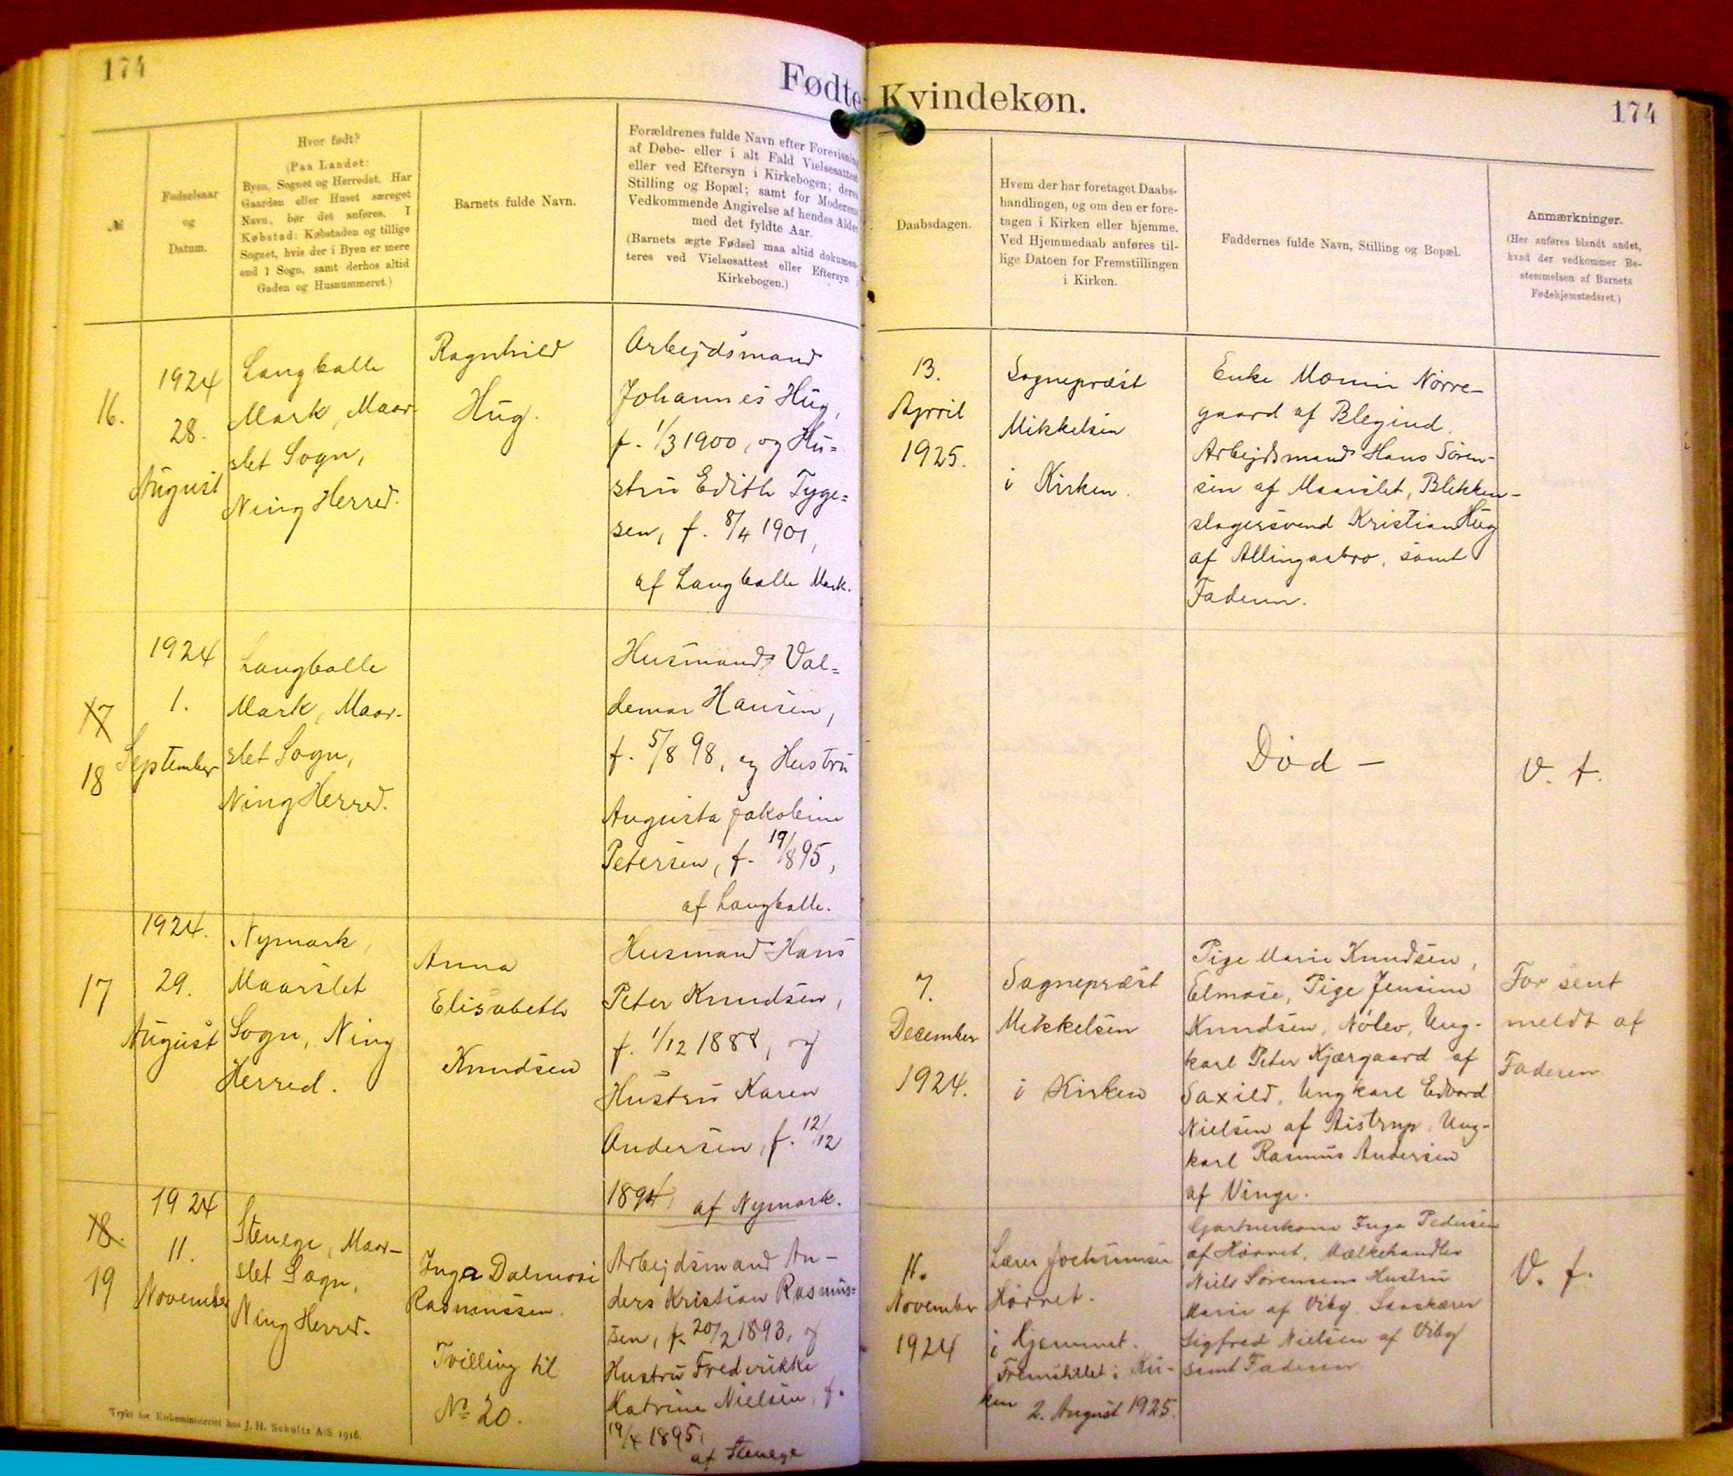 174
Fødte Kvindekøn.
174
№
Fødselsaar
og
Datum.
Hvor født?
(Paa Landet:
Byen, Sognet og Herredet. Har
Gaarden eller Huset særeget
Navn, bør det anføres. I
Købstad: Købstaden og tillige
Sognet, hvis der i Byen er mere
end 1 Sogn, samt derhos altid
Gaden og Husnummeret.)
Barnets fulde Navn.
Forældrenes fulde Navn efter Forevisning
af Døbe- eller i alt Fald Vielsesattest
eller ved Eftersyn i Kirkebogen; deres
Stilling og Bopæl; samt for Moderens
Vedkommende Angivelse af hendes Alder
med det fyldte Aar.
(Barnets ægte Fødsel maa altid dokumen-
teres ved Vielsesattest eller Eftersyn i
Kirkebogen.)
Daabsdagen.
Hvem der har foretaget Daabs-
handlingen, og om den er fore-
tagen i Kirken eller hjemme.
Ved Hjemmedaab anføres til-
lige Datoen for Fremstillingen
i Kirken.
Faddernes fulde Navn, Stilling og Bopæl.
Anmærkninger.
(Her anføres blandt andet,
hvad der vedkommer Be-
stemmelsen af Barnets
Fødehjemstedsret.)
16.
1924
28.
August
Langballe
Mark, Maar-
slet Sogn,
Ning Herred.
Ragnhild
Hug.
Arbejdsmand
Johannes Hug,
f. 1/3 1900, og Hu=
stru Edith Tyge=
sen, f. 8/4 1901,
af Langballe Mark.
13.
April
1925.
Sognepræst
Mikkelsen
i Kirken.
Enke Nørre-
gaard af Blegind.
Arbejdsmand Hans Søren-
sen af Maarslet, Blikken-
slagersvend Kristian Hug
af Allingaabro, samt
Faderen.
17
18
1924
1.
September
Langballe
Mark, Maar-
slet Sogn,
Ning Herred.
Husmand Val=
demar Hansen,
f. 5/8 98, og Hustru
Augusta Jakobine
Petersen, f. 19/8 95,
af Langballe.
Død -
V. f.
17
1924.
29.
August
Nymark,
Maarslet
Sogn, Ning
Herred.
Anna
Elisabeth
Knudsen
Husmand Hans
Peter Knudsen,
f. 1/12 1888, og
Hustru Karen
Andersen, f. 12/12
1894, af Nymark.
7.
December
1924.
Sognepræst
Mikkelsen
i Kirken
Pige Marie Knudsen,
Elmose, Pige Jensine
Knudsen, Nølev, Ung-
karl Peter Kjærgaard af
Saxild, Ungkarl Edvard
Nielsen af Aistrup, Ung-
karl Rasmus Andersen
af Vinge.
For sent
meldt af
Faderen
18.
19
1924
11.
November
Stenege, Maar-
slet Sogn,
Ning Herred.
Inga Dalmosi
Rasmussen.
Tvilling til
№ 20.
Arbejdsmand An-
ders Kristian Rasmus=
sen, f. 20/2 1893, og
Hustru Frederikke
Katrine Nielsen, f.
19/4 1895,
af Stenege
11.
November
1924
Lærer Jochumsen
Hørret.
i Hjemmet.
Fremstillet i Kir-
ken 2. August 1925.
Gartnerkone Inga Pedersen
af Hørret, Mælkehandler
Niels Sørensens Hustru
Marie af Viby,
Sigfred Nielsen af Viby
samt Faderen
V. f.
Trykt for Kirkeministeriet hos J. H. Schultz A/S 1916.